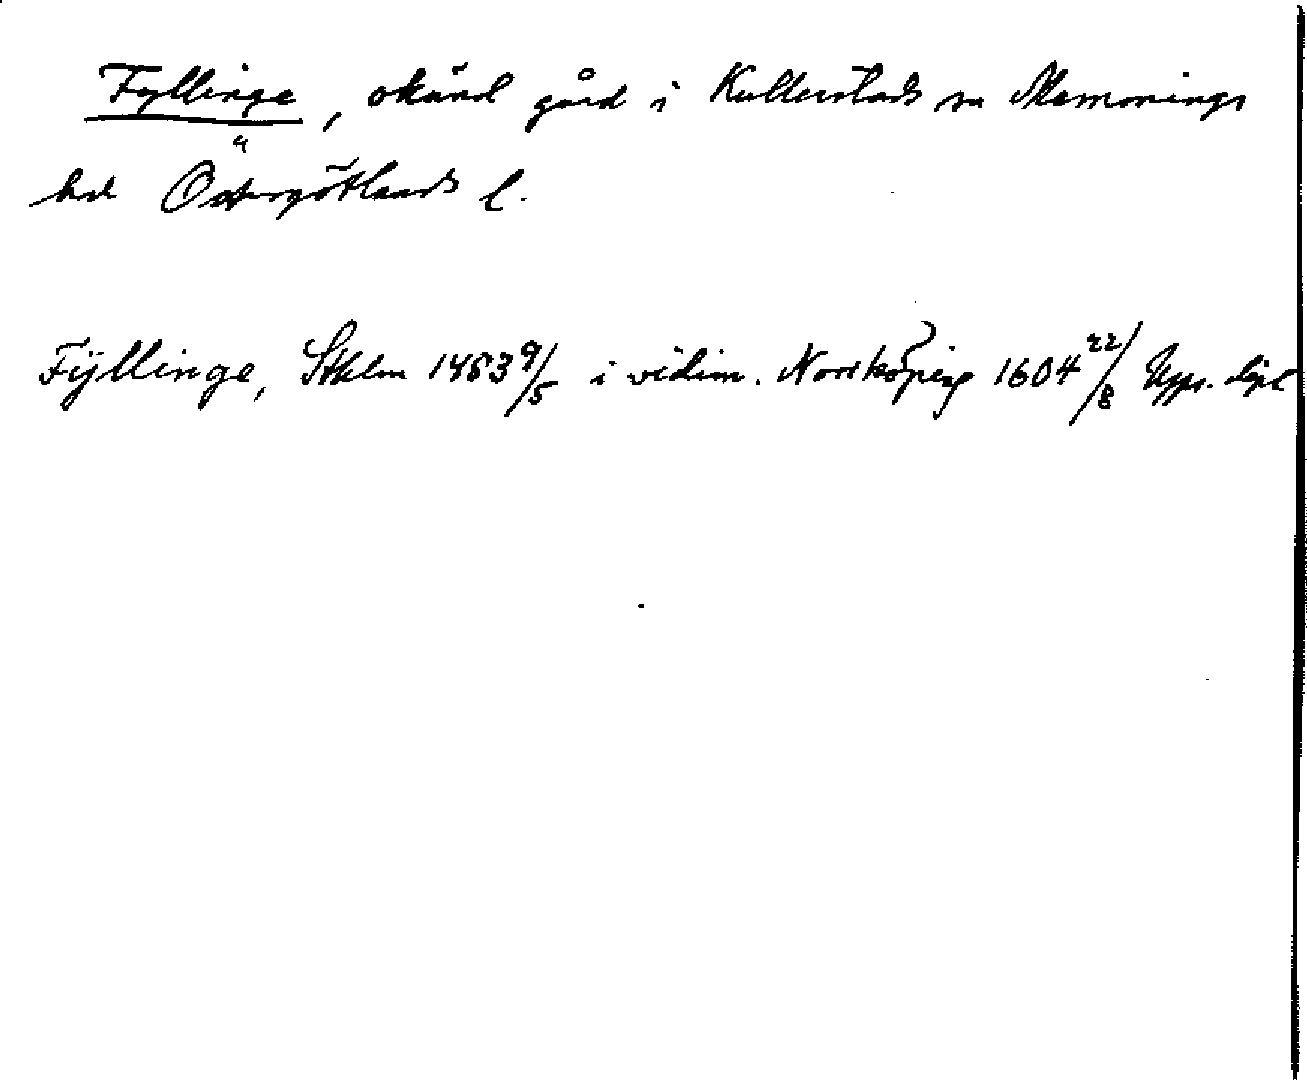 Fyllinge, okänd gård i Kullerstads sn Memmings
hd Östergötlands l.
Fÿllinge, Sthlm 1453 9/5 i vidim. Norrköping 1604 22/8 Upps. dipl